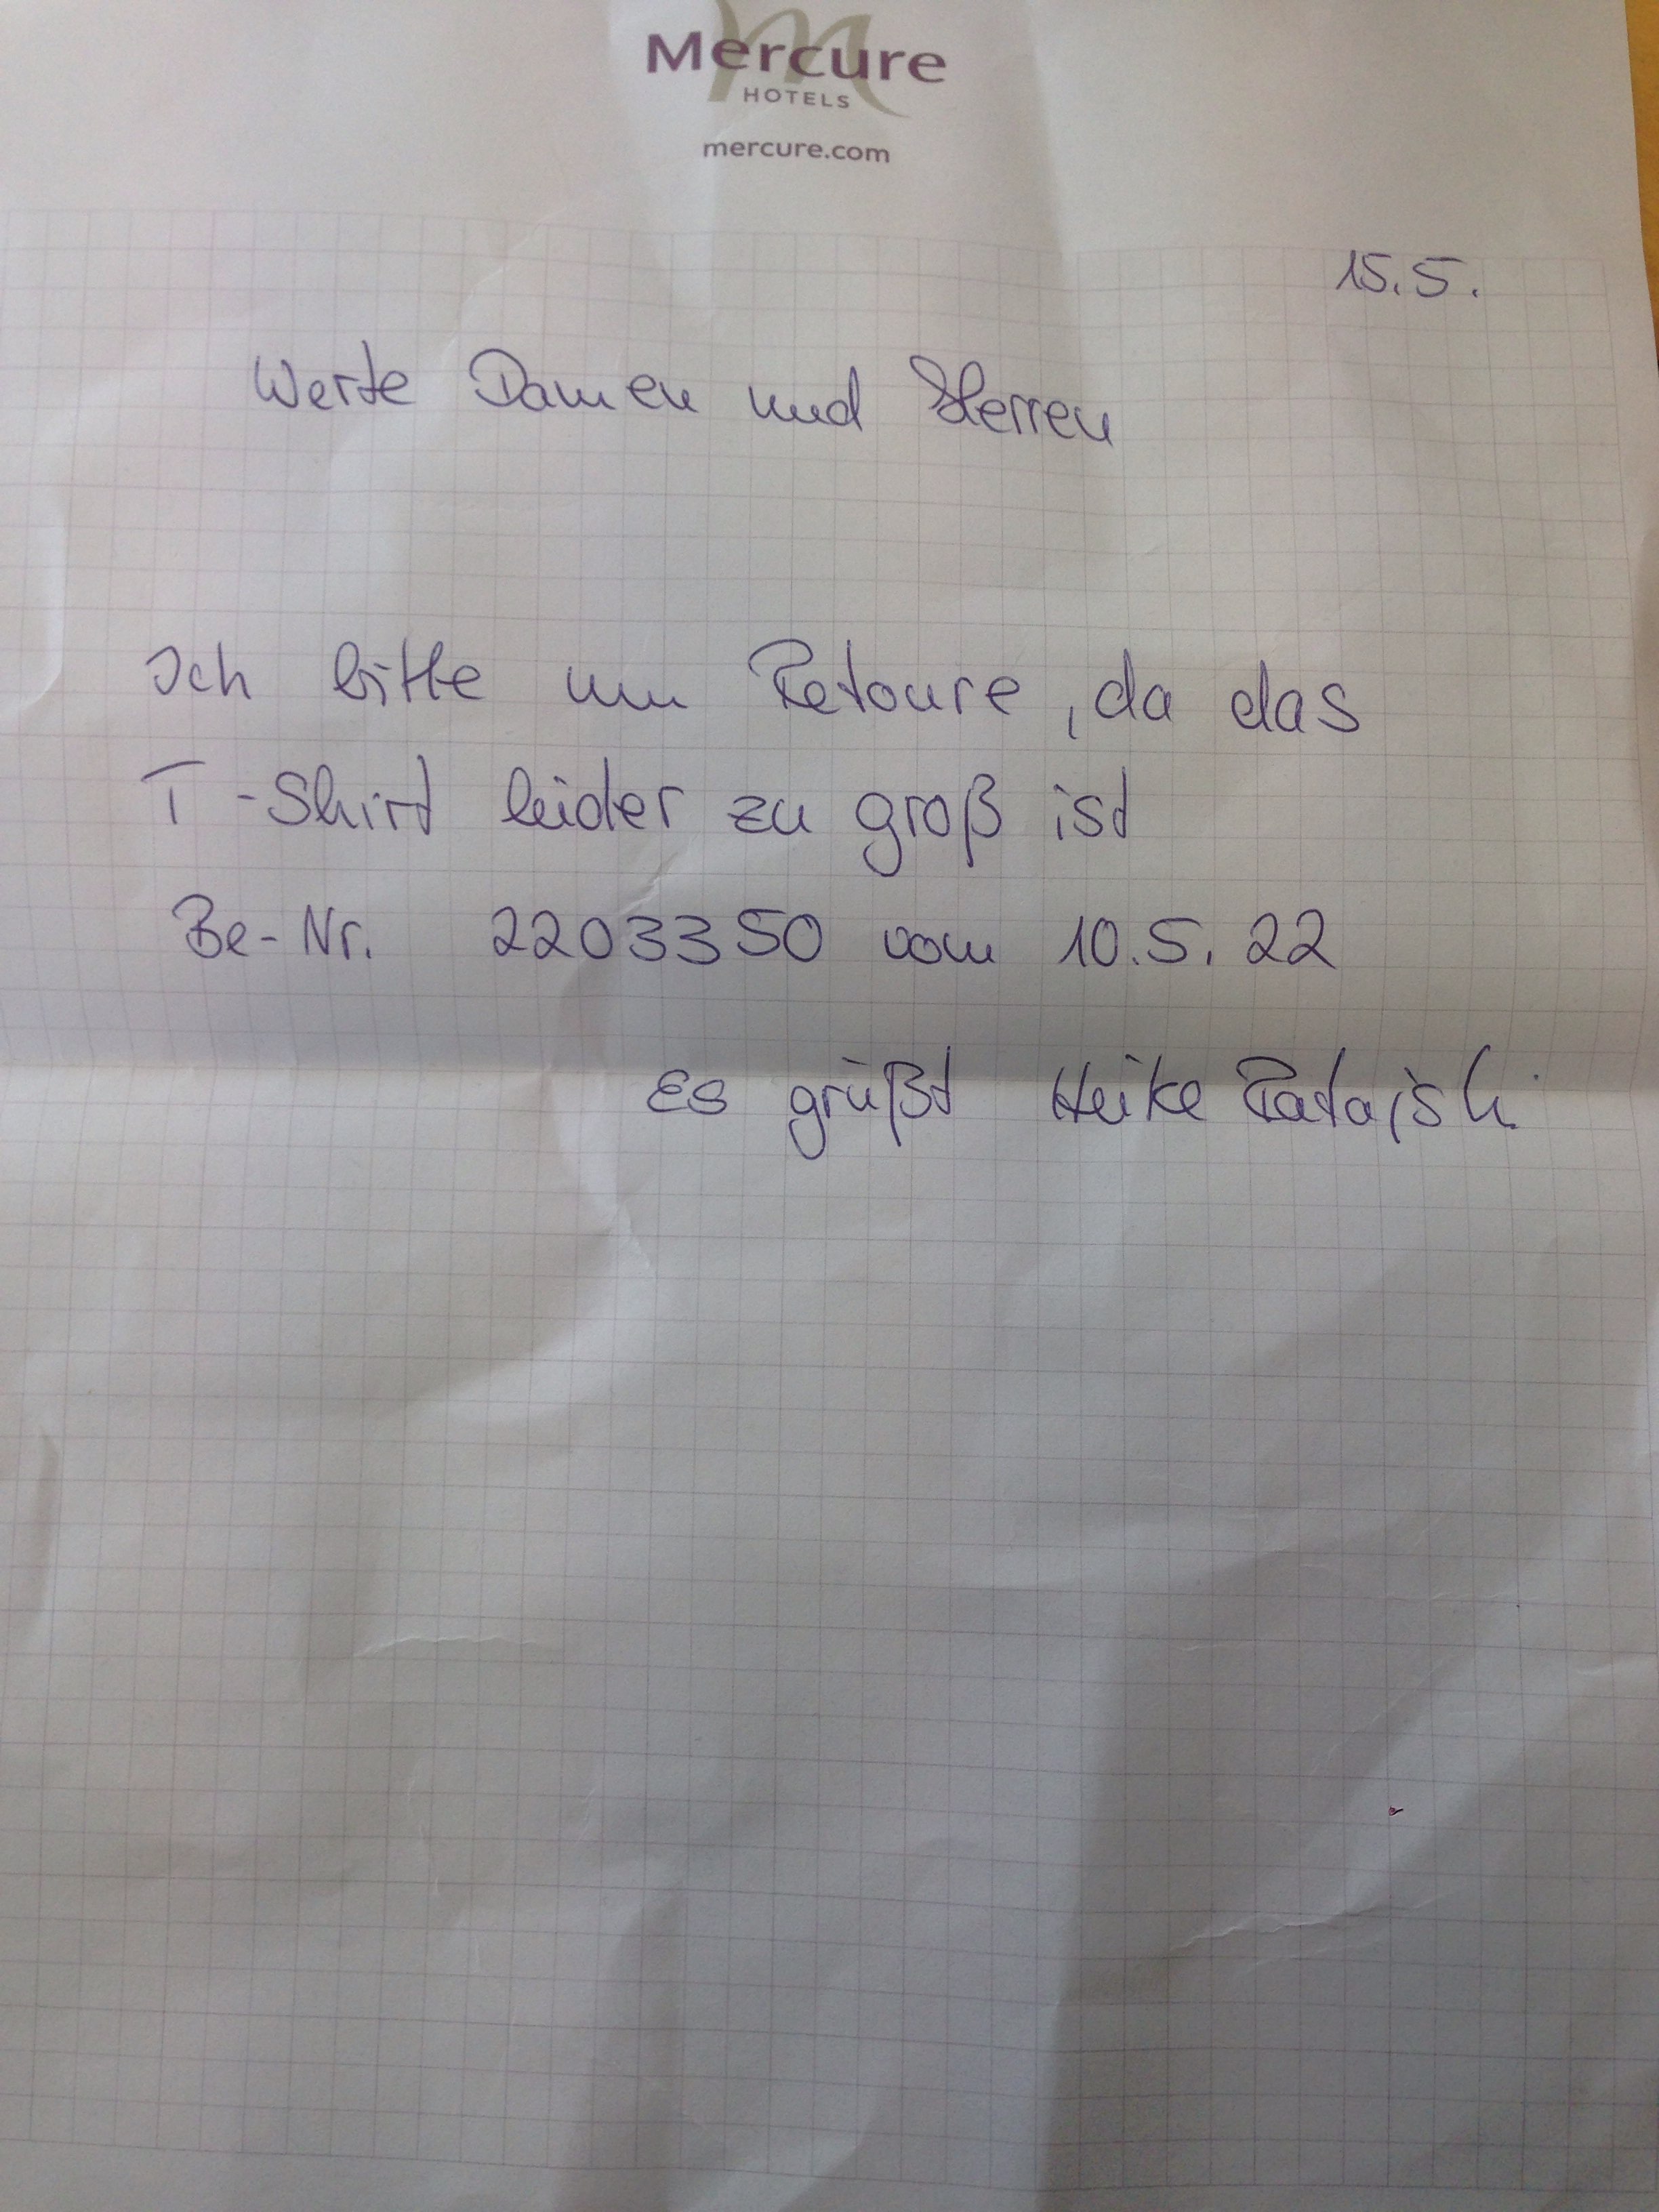 Mercure
HOTELS
mercure.com
15.5.
Werte Damen und Herren
Ich bitte um Retoure, da das
T-Shirt leider zu groß ist
Be-Nr. 2203350 vom 10.5.22
Es grüßt Heike